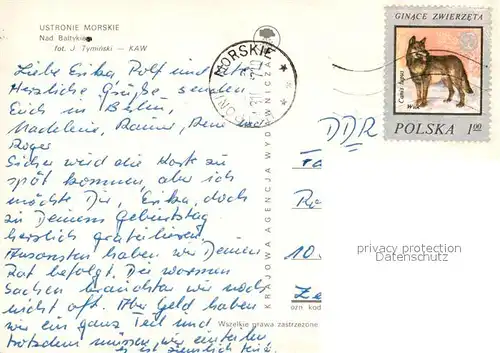 USTRONIE MORSKIE
Nad Bałtykiem
fot. J. Tymiński — KAW
Liebe Erika, Rolf und
Herzliche Grüße senden
Euch in Berlin,
Madeleine, Rainer, René und
Roger
Sicher wird die Karte zu
spät kommen, aber ich
möchte Dir, Erika, doch
zu Deinem Geburtstag
herzlich gratulieren.
Ansonsten haben wir Deinen
Rat befolgt. Die warmen
Sachen brauchten wir noch
nicht oft. Aber Geld haben
wir ein ganz Teil und
trotzdem müssen wir einteilen
es ist ziemlich
KRAJOWA AGENCJA WYDAWNICZA
MORSKIE
GINĄCE ZWIERZĘTA
Canis lupus
Wilk
POLSKA 1,00
DDR
10.
ozn kod
Wszelkie prawa zastrzeżone
privacy protection
Datenschutz